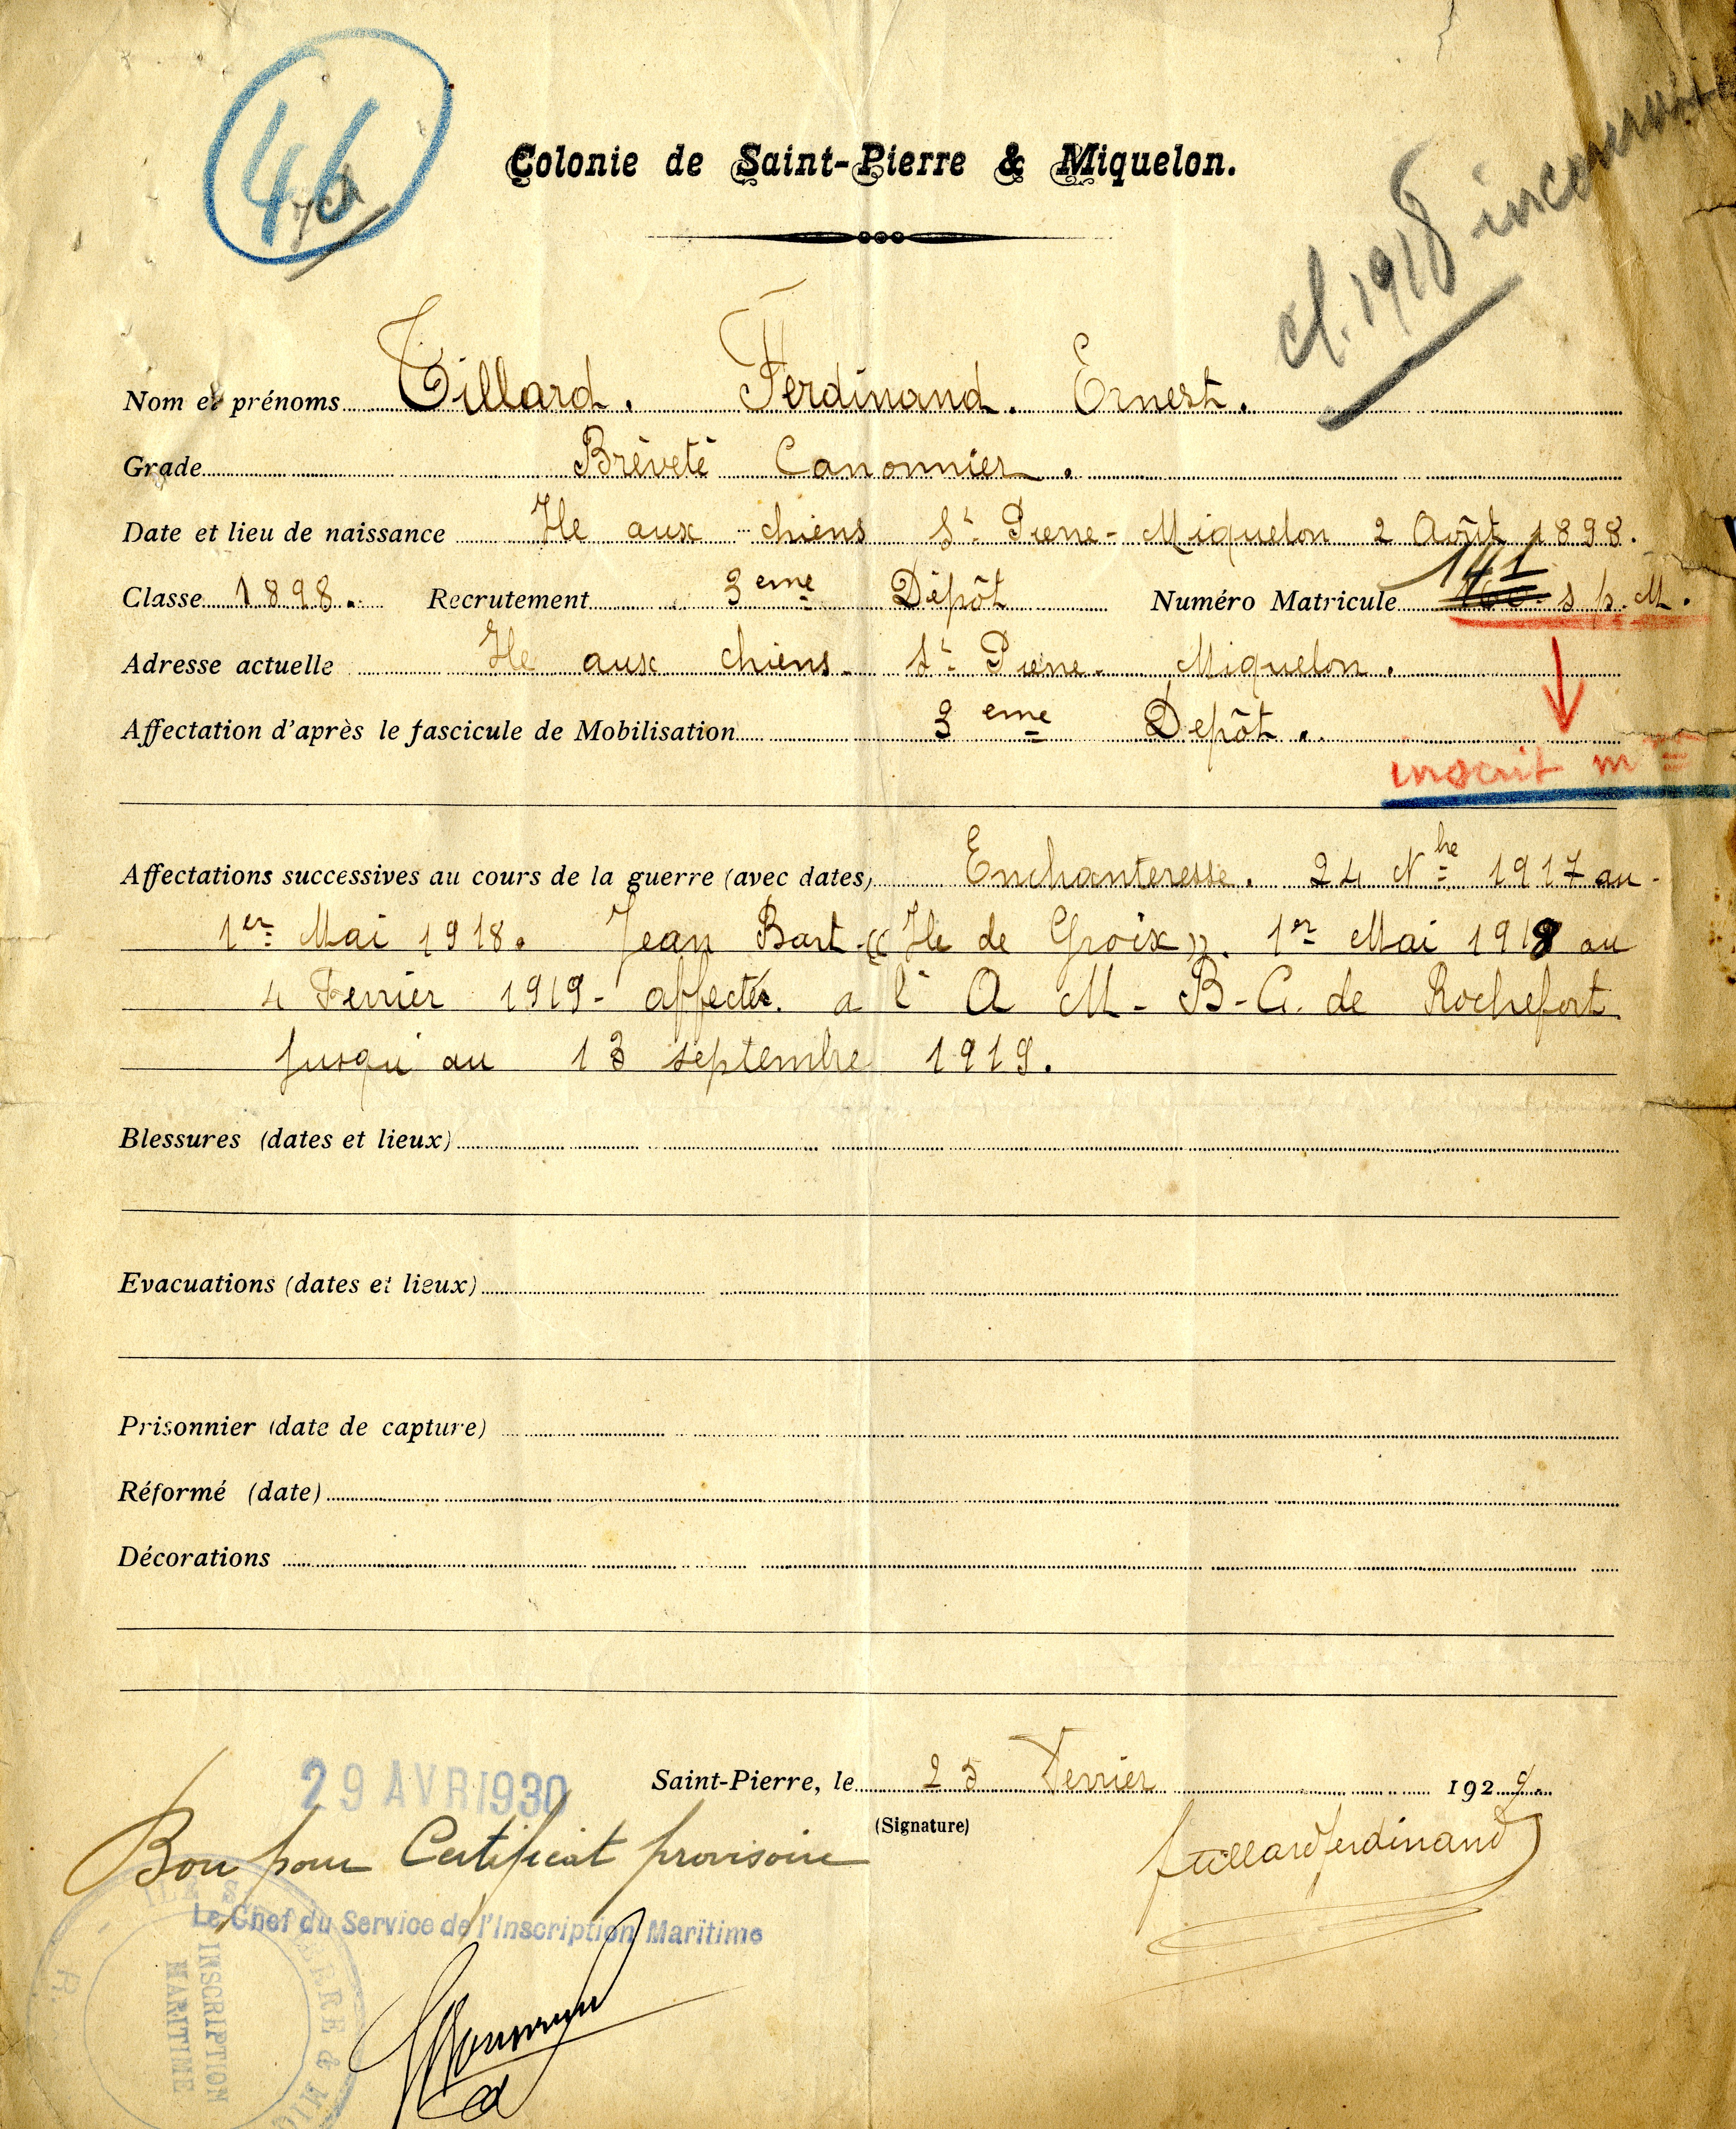 46
Colonie de Saint-Pierre & Miquelon.
cl. 1918
Nom et prénoms Tillard. Ferdinand. Ernest.
Grade Brèveté Canonnier.
Date et lieu de naissance Ile aux chiens St Pierre-Miquelon 2 Août 1898.
Classe 1898. Recrutement 3eme Dépôt Numéro Matricule 141 s p. M.
Adresse actuelle Ile aux chiens. St Pierre. Miquelon.
Affectation d'après le fascicule de Mobilisation 3eme Depôt.
inscrit me
Affectations successives au cours de la guerre (avec dates) Enchanteresse. 24 Nbre 1917 au
1er Mai 1918. Jean Bart « Ile de Groix ». 1er Mai 1918 au
4 Fevrier 1919- affecté. a l' A M-B-G. de Rochefort
Jusqu'au 13 septembre 1919.
Blessures (dates et lieux)
Evacuations (dates et lieux)
Prisonnier (date de capture)
Réformé (date)
Décorations
29 AVR 1930
Saint-Pierre, le 25 Fevrier 1929.
(Signature)
tillard ferdinand
Bon pour Certificat provisoire
Le Chef du Service de l'Inscription Maritime
INSCRIPTION
MARITIME